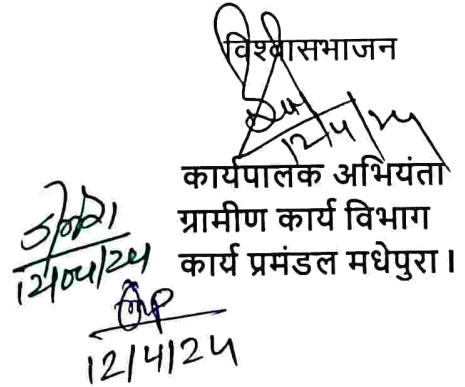 विश्वासभाजन
12/4/24
कार्यपालक अभियंता
ग्रामीण कार्य विभाग
कार्य प्रमंडल मधेपुरा ।
12/04/24
12/4/24